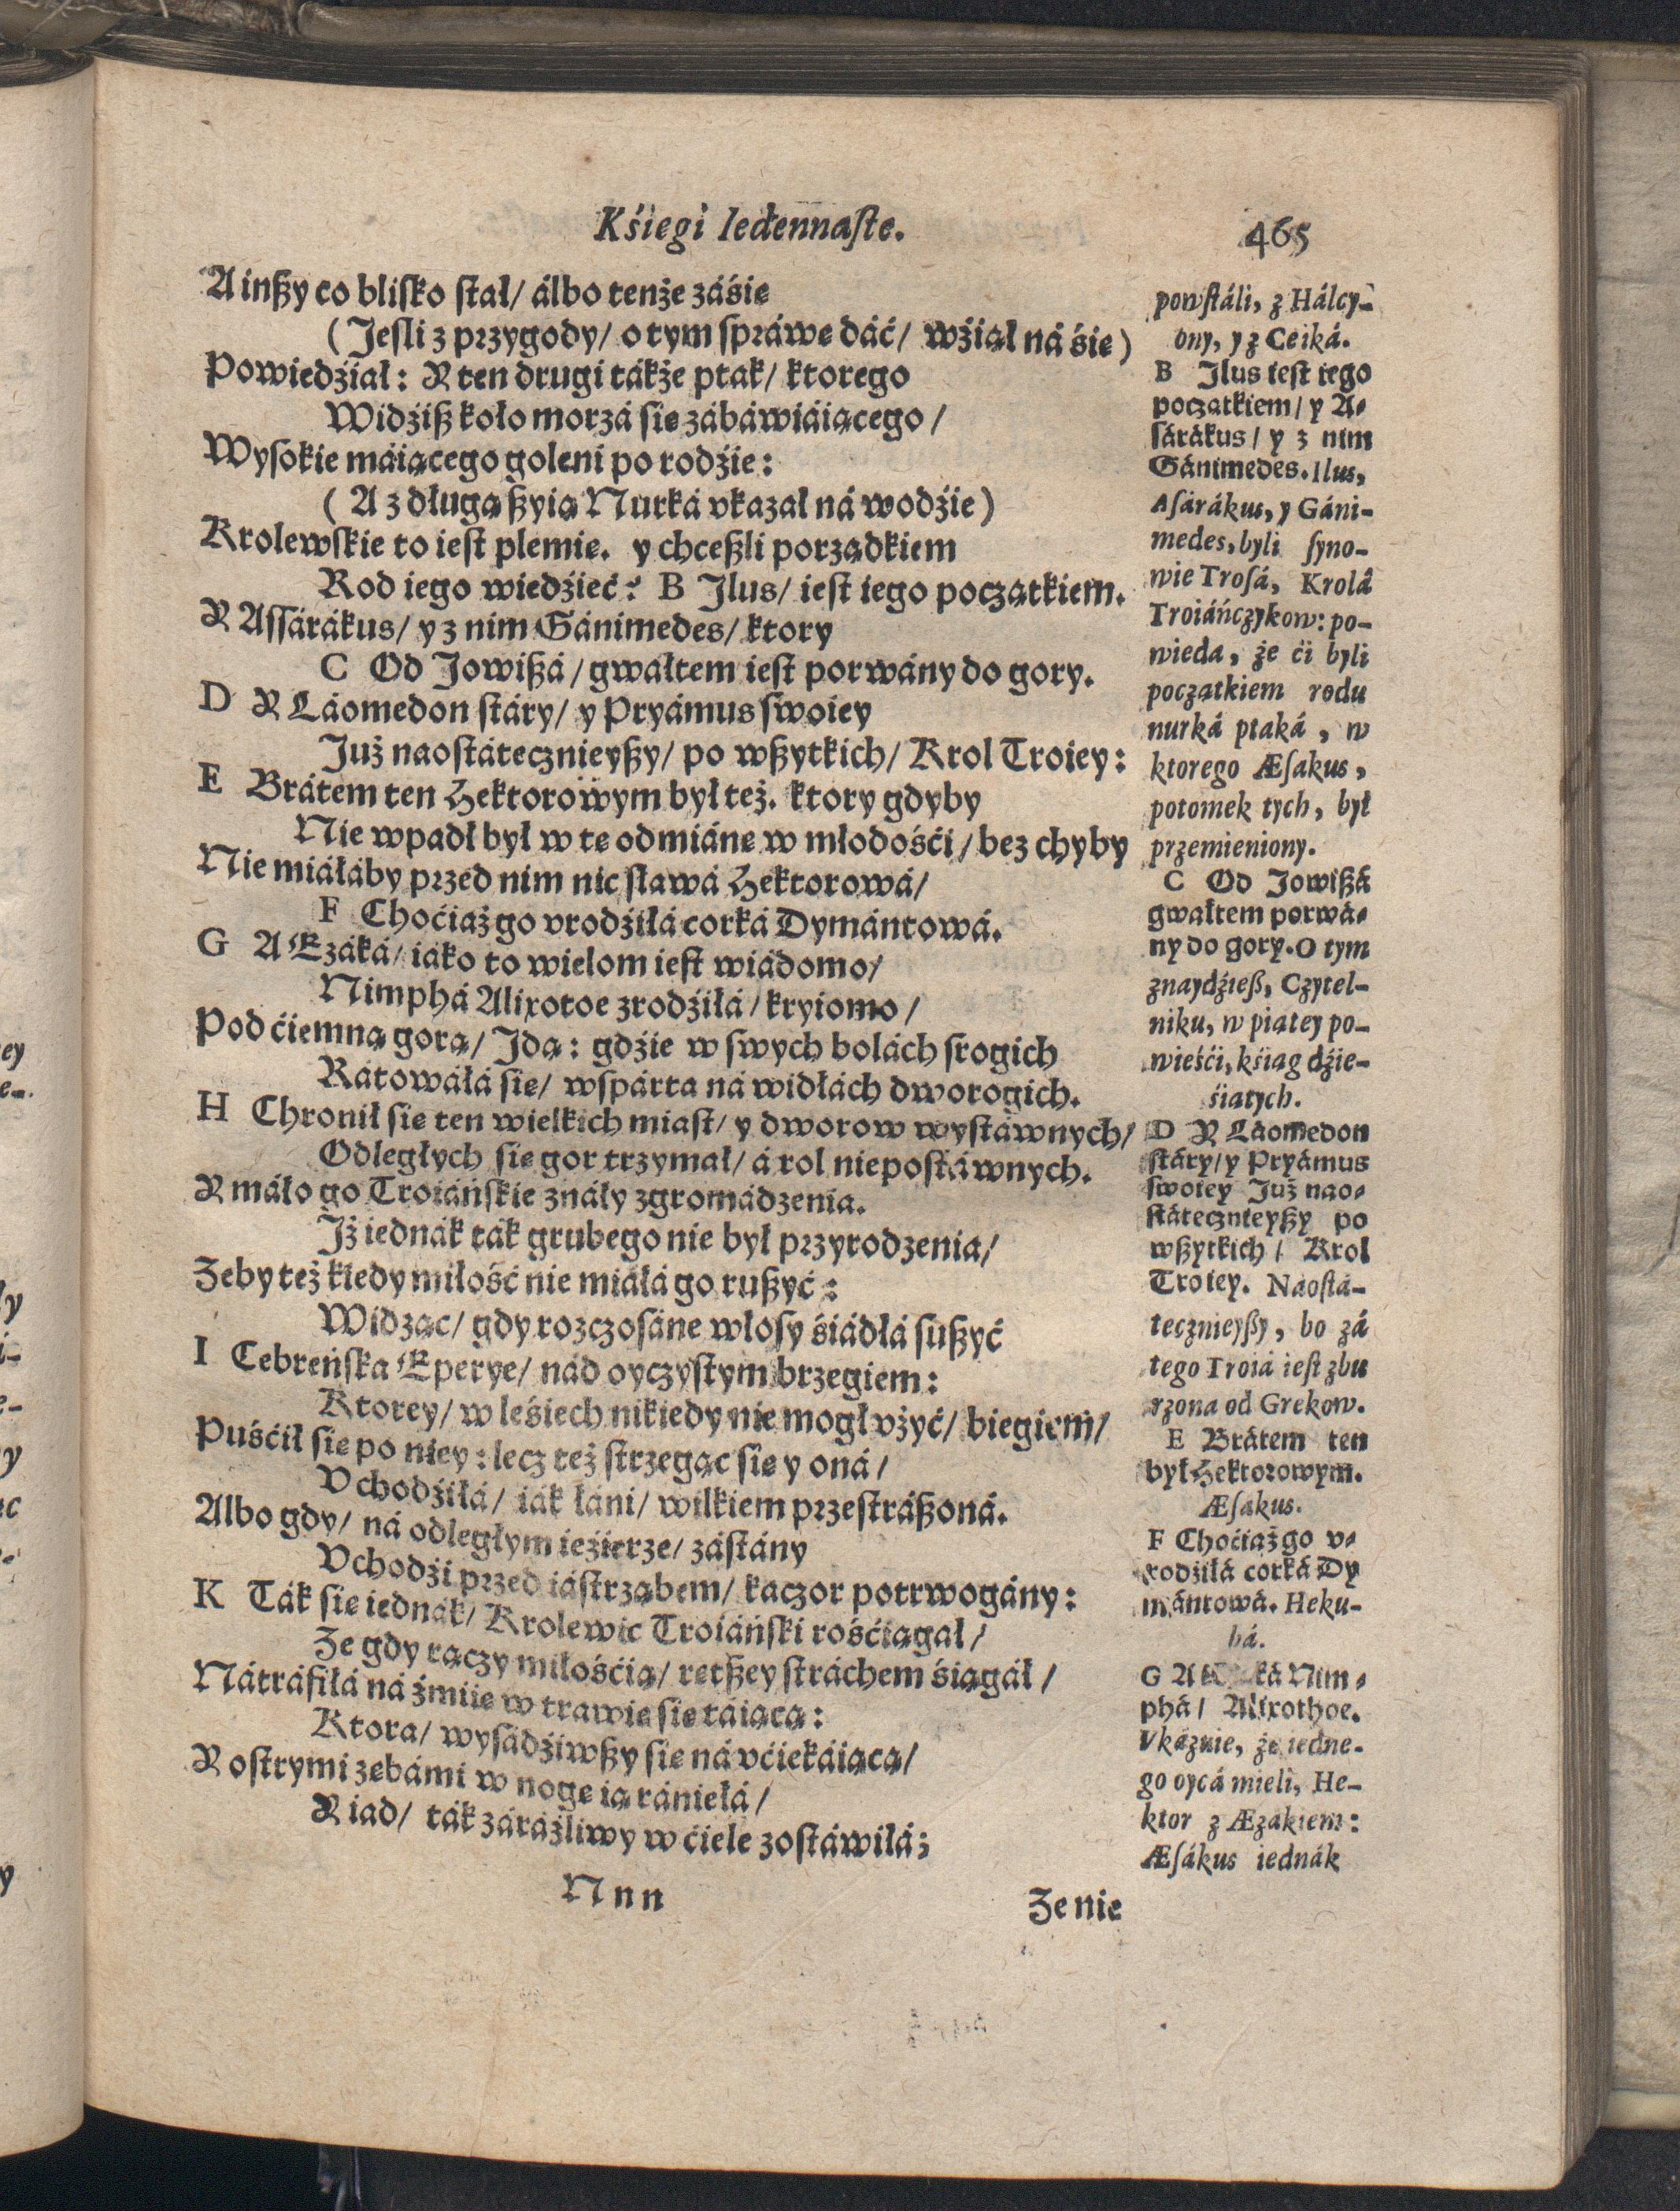 Kśięgi Iedennaſte. 465
A inßy co bliſko ſtał/ álbo tenże záśię
(Jeſli z przygody/ o tym ſpráwę dáć/ wźiął ná śię)
Powiedźiał: Y ten drugi tákże ptak/ ktorego
Widźiß koło morzá ſię zábáwiáiącego/
Wyſokie máiącego goleni po rodźie:
(A z długą ßyią Nurká vkazał ná wodźie)
Krolewſkie to ieſt plemię. y chceßli porządkiem
Rod iego wiedźieć? B Jlus/ ieſt iego początkiem.
Y Aſſárákus/ y z nim Gánimedes/ ktory
C Od Jowißá/ gwałtem ieſt porwány do gory.
D Y Láomedon ſtáry/ y Pryámus ſwoiey
Już naoſtátecznieyßy/ po wßytkich/ Krol Troiey:
E Brátem ten Hektorowym był też. ktory gdyby
Nie wpadł był w tę odmiánę w młodośći/ bez chyby
Nie miáłáby przed nim nic ſławá Hektorowá/
F Choćiaż go vrodźiłá corká Dymántowá.
G A Ezáká/ iáko to wielom ieſt wiádomo/
Nimphá Alixotoe zrodźiłá/ kryiomo/
Pod ćiemną gorą/ Jdą: gdźie w ſwych bolách ſrogich
Rátowáłá ſię/ wſpárta ná widłách dworogich.
H Chronił ſię ten wielkich miaſt/ y dworow wyſtáwnych/
Odległych ſię gor trzymał/ á rol niepoſtáwnych.
Y máło go Troiáńſkie znáły zgromádzenia.
Jż iednák ták grubego nie był przyrodzenia/
Zeby też kiedy miłość nie miáłá go rußyć:
Widząc/ gdy rozczoſáne włoſy śiádłá ſußyć
I Cebreńſka Eperye/ nád oyczyſtym brzegiem:
Ktorey/ w leśiech nikiedy nie mogł vżyć/ biegiem/
Puśćił ſię po niey: lecz też ſtrzegąc ſię y oná/
Vchodźiłá/ iák łáni/ wilkiem przeſtráßoná.
Albo gdy/ ná odległym ieźierze/ záſtány
Vchodźi przed iáſtrząbem/ kaczor potrwogány:
K Ták ſię iednák/ Krolewic Troiáńſki rośćiągał/
Ze gdy rączy miłośćią/ retßey ſtráchem śiągał/
Nátráfiłá ná żmiię w trawie ſię táiącą:
Ktora/ wyſádźiwßy ſię ná vćiekáiącą/
Y oſtrymi zębámi w nogę ią rániełá/
Y iad/ ták záráźliwy w ćiele zoſtáwiłá;
Nnn Ze nie
powſtáli, z Hálcy-
ony, y z Ceiká.
B Jlus ieſt iego
początkiem/ y A-
ſárákus/ y z nim
Gánimedes. Ilus,
Aſárákus, y Gáni-
medes, byli ſyno-
wie Troſá, Krolá
Troiáńczykow: po-
wieda, że ći byli
początkiem rodu
nurká ptaká, w
ktorego Æſakus,
potomek tych, był
przemieniony.
C Od Jowißá
gwałtem porwá-
ny do gory. O tym
znaydźieß, Czytel-
niku, w piątey po-
wieśći, kśiąg dźie-
śiątych.
D Y Láomedon
ſtáry/ y Pryámus
ſwoiey Już nao-
ſtátecznieyßy po
wßytkich/ Krol
Troiey. Náoſtá-
tecznieyßy, bo zá
tego Troiá ieſt zbu
rzona od Grekow.
E Brátem ten
był Hektorowym.
Æſakus.
F Choćiaż go v-
rodźiłá corká Dy
mántowá. Heku-
bá.
G A Nim-
phá/ Alixothoe.
Vkázuie, że iedne-
go oycá mieli, He-
ktor z Æzákiem:
Æſákus iednák